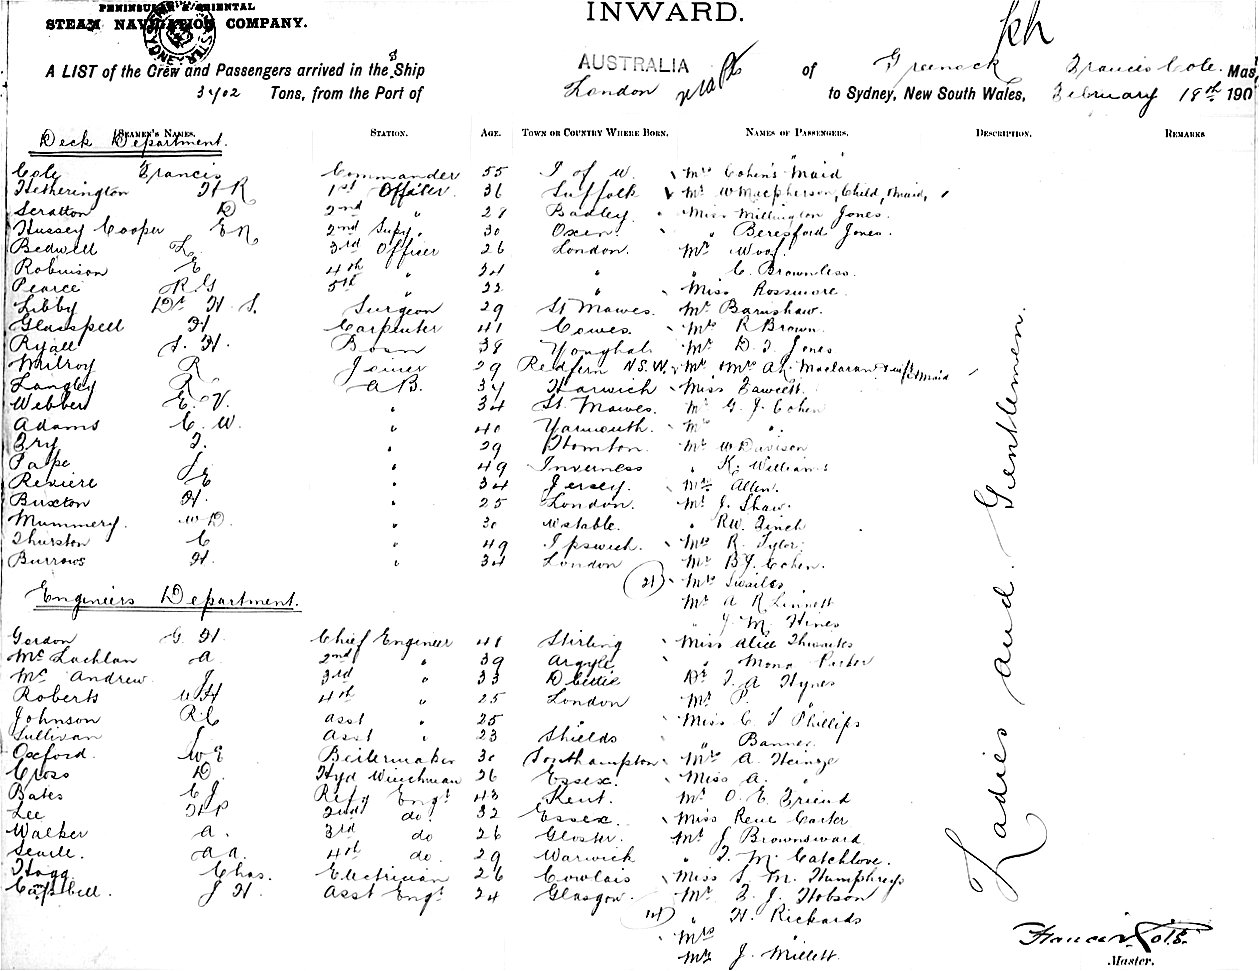 PENINSULAR & ORIENTAL
STEAM NAVIGATION COMPANY.
INWARD.
A LIST of the Crew and Passengers arrived in the Ship AUSTRALIA of Greenock Francis Cole Mas
Tons, from the Port of London to Sydney, New South Wales, February 18th 190
SEAMEN'S NAMES. STATION. AGE. TOWN OR COUNTRY WHERE BORN. NAMES OF PASSENGERS. DESCRIPTION. REMARKS
Deck Department.
Cole Francis Commander 55 I of W. Mrs Cohen's Maid
Hetherington H R 1st Officer 36 Suffolk Mrs W Macpherson, Child, Maid,
Scratton D 2nd " 29 Badley Miss Millington Jones.
Hussey Cooper E N 2nd Supy. 30 Oxon. " Beresford Jones.
Bedwell L 3rd Officer 26 London. Mr Woof.
Robinson E 4th " 24 " " C. Brownless.
Pearce R G 5th " 22 Miss Rossmore
Libby Dr H. S. Surgeon 29 St Mawes. Mr Barnshaw.
Glasspell H Carpenter 41 Cowes. Mrs R Brown.
Ryall J. H. Bosn 38 Youghal. Mr D. T. Jones
Milroy R Joiner 29 Redfern N.S.W. Mr & Mrs Maclaran Maid
Langley R A.B. 37 Harwich Miss Fawcett.
Webber E. V. " 34 St. Mawes. Mr G. J. Cohen
Adams C. W. " 40 Yarmouth. Mrs "
Fry T. " 29 Mr W Davison
Pape J " 49 Inverness " K. Williams
Reviere E " 34 Jersey. Mrs Allen.
Buxton H. " 25 London. Mr J. Shaw.
Mummery. W D. " 30 Wstable. " R W. Finch
Thurston C " 49 Ipswich. Mrs R. Tyler
Burrows H. " 34 London Mr B J. Cohen.
(21) Mrs Swailes
Engineers Department.
Mr A R Linnett
" J M. Hines
Gordon G. H. Chief Engineer 41 Stirling Miss Alice Thwaites
McLachlan A. 2nd " 39 Argyle " Mona Parker
McAndrew J 3rd " 33 Dr T. A Hynes
Roberts W H 4th " 25 London Mr P. "
Johnson R C Asst " 25 " Miss C T Phillips
Sullivan J Asst " 23 Shields " Banner
Oxford. W E Boilermaker 30 Southampton Mr A. Heinze
Cross D. Hyd Winchman 26 Essex. Miss A. "
Bates C J Refg Engr 43 Kent. Mr O. E. Friend
Lee H P 2nd do. 32 Essex. Miss Rene Carter
Walker A. 3rd do 26 Gloster. Mr J Brownsword
Searle. A A. 4th do. 29 Warwick " T. M. Catchlove.
Hogg Chas. Electrician 26 Cowlais Miss S. M. Humphreys
Campbell. J H. Asst Engr 24 Glasgow. Mr F. J. Hobson
(14) " H. Rickards
Mrs "
Mr J. Millett.
Ladies and Gentlemen.
Francis Cole.
Master.